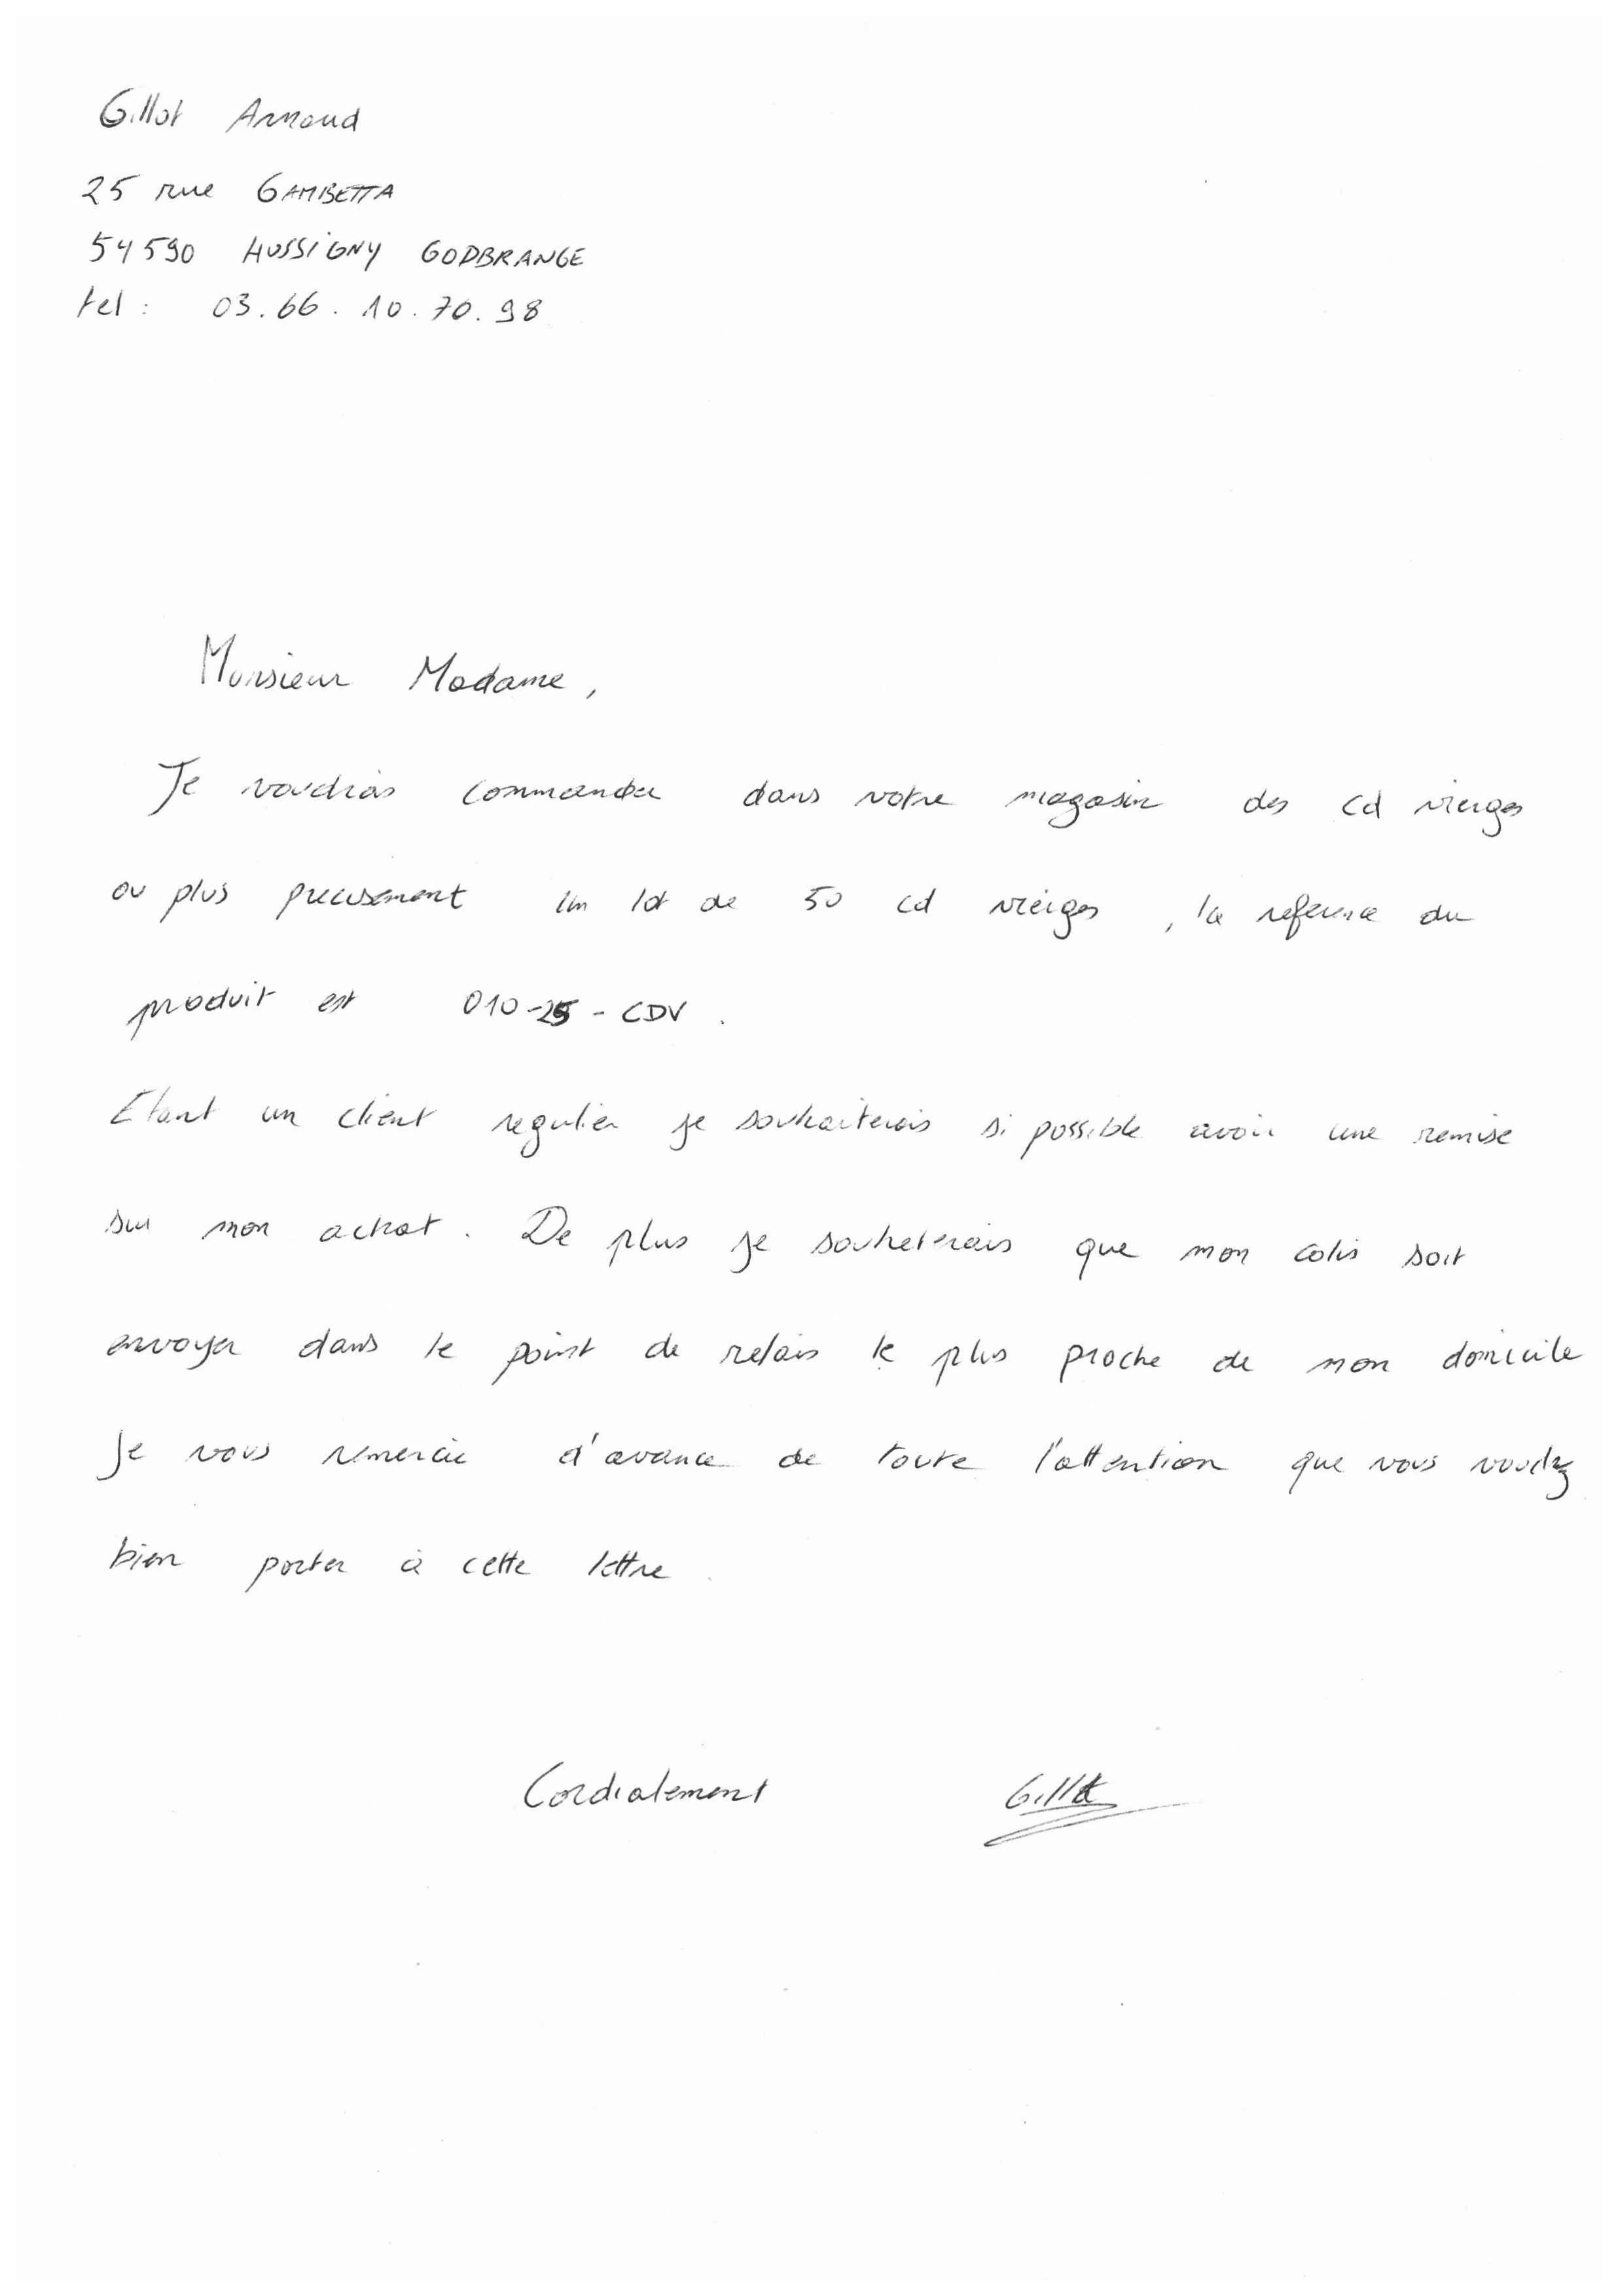 Gillot Arnaud
25 rue GAMBETTA
54590 HUSSIGNY GODBRANGE
tel : 03.66.10.70.98
Monsieur Madame,
Je voudrais commander dans votre magasin des cd vierges
ou plus precisement un lot de 50 cd vierges, la reference du
produit est 010-25-CDV.
Etant un client regulier je souhaiterais si possible avoir une remise
sur mon achat. De plus je souheterais que mon colis soit
envoyer dans le point de relais le plus proche de mon domicile
Je vous remercie d'avance de toute l'attention que vous voudrez
bien porter à cette lettre.
Cordialement Gillot